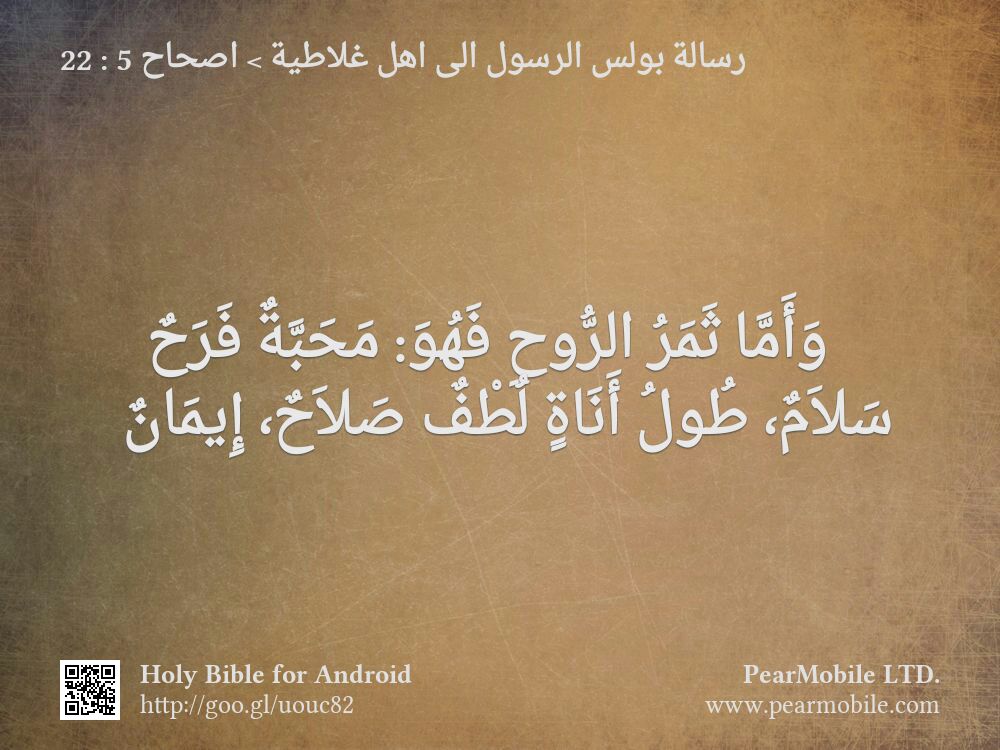 رسالة بولس الرسول الى اهل غلاطية > اصحاح 5 : 22
وَأَمَّا ثَمَرُ الرُّوحِ فَهُوَ: مَحَبَّةٌ فَرَحٌ
سَلاَمٌ، طُولُ أَنَاةٍ لُطْفٌ صَلاَحٌ، إِيمَانٌ
Holy Bible for Android
http://goo.gl/uouc82
PearMobile LTD.
www.pearmobile.com